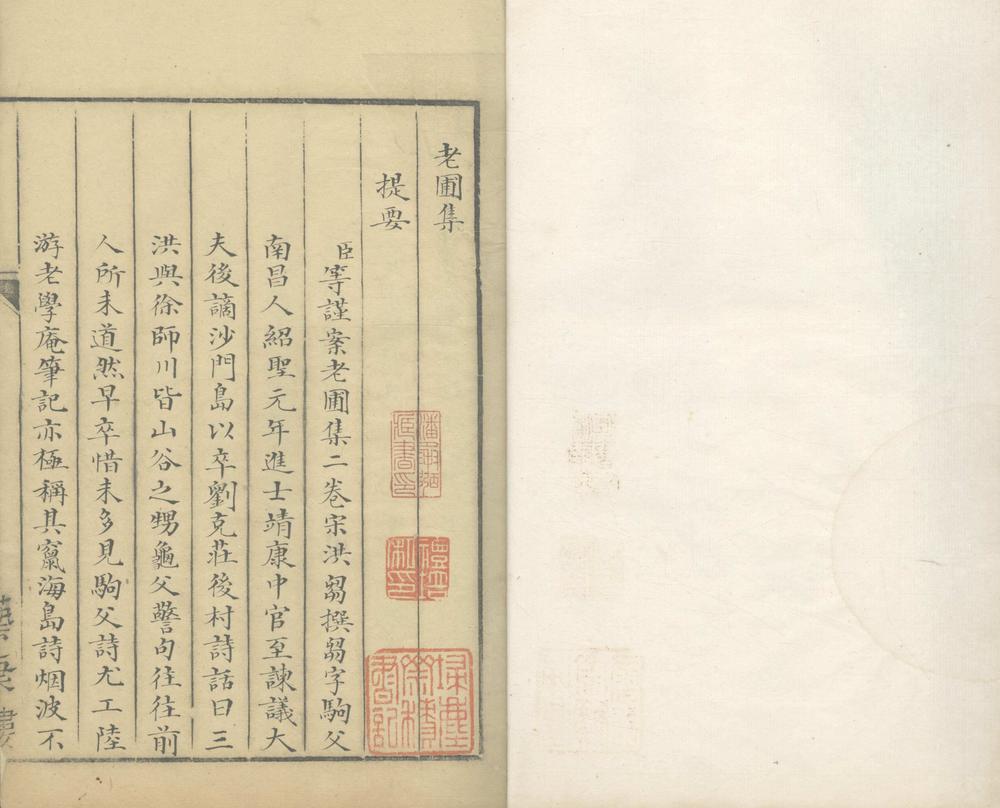 老圃集
提要
臣等謹案老圃集二巻宋洪芻撰芻字駒父
南昌人紹聖元年進士靖康中官至諫議大
夫後謫沙門島以卒劉克莊後村詩話曰三
洪與徐師川皆山谷之甥龜父警句往往前
人所未道然早卒惜未多見駒父詩尤工陸
游老學庵筆記亦極稱其竄海島詩烟波不